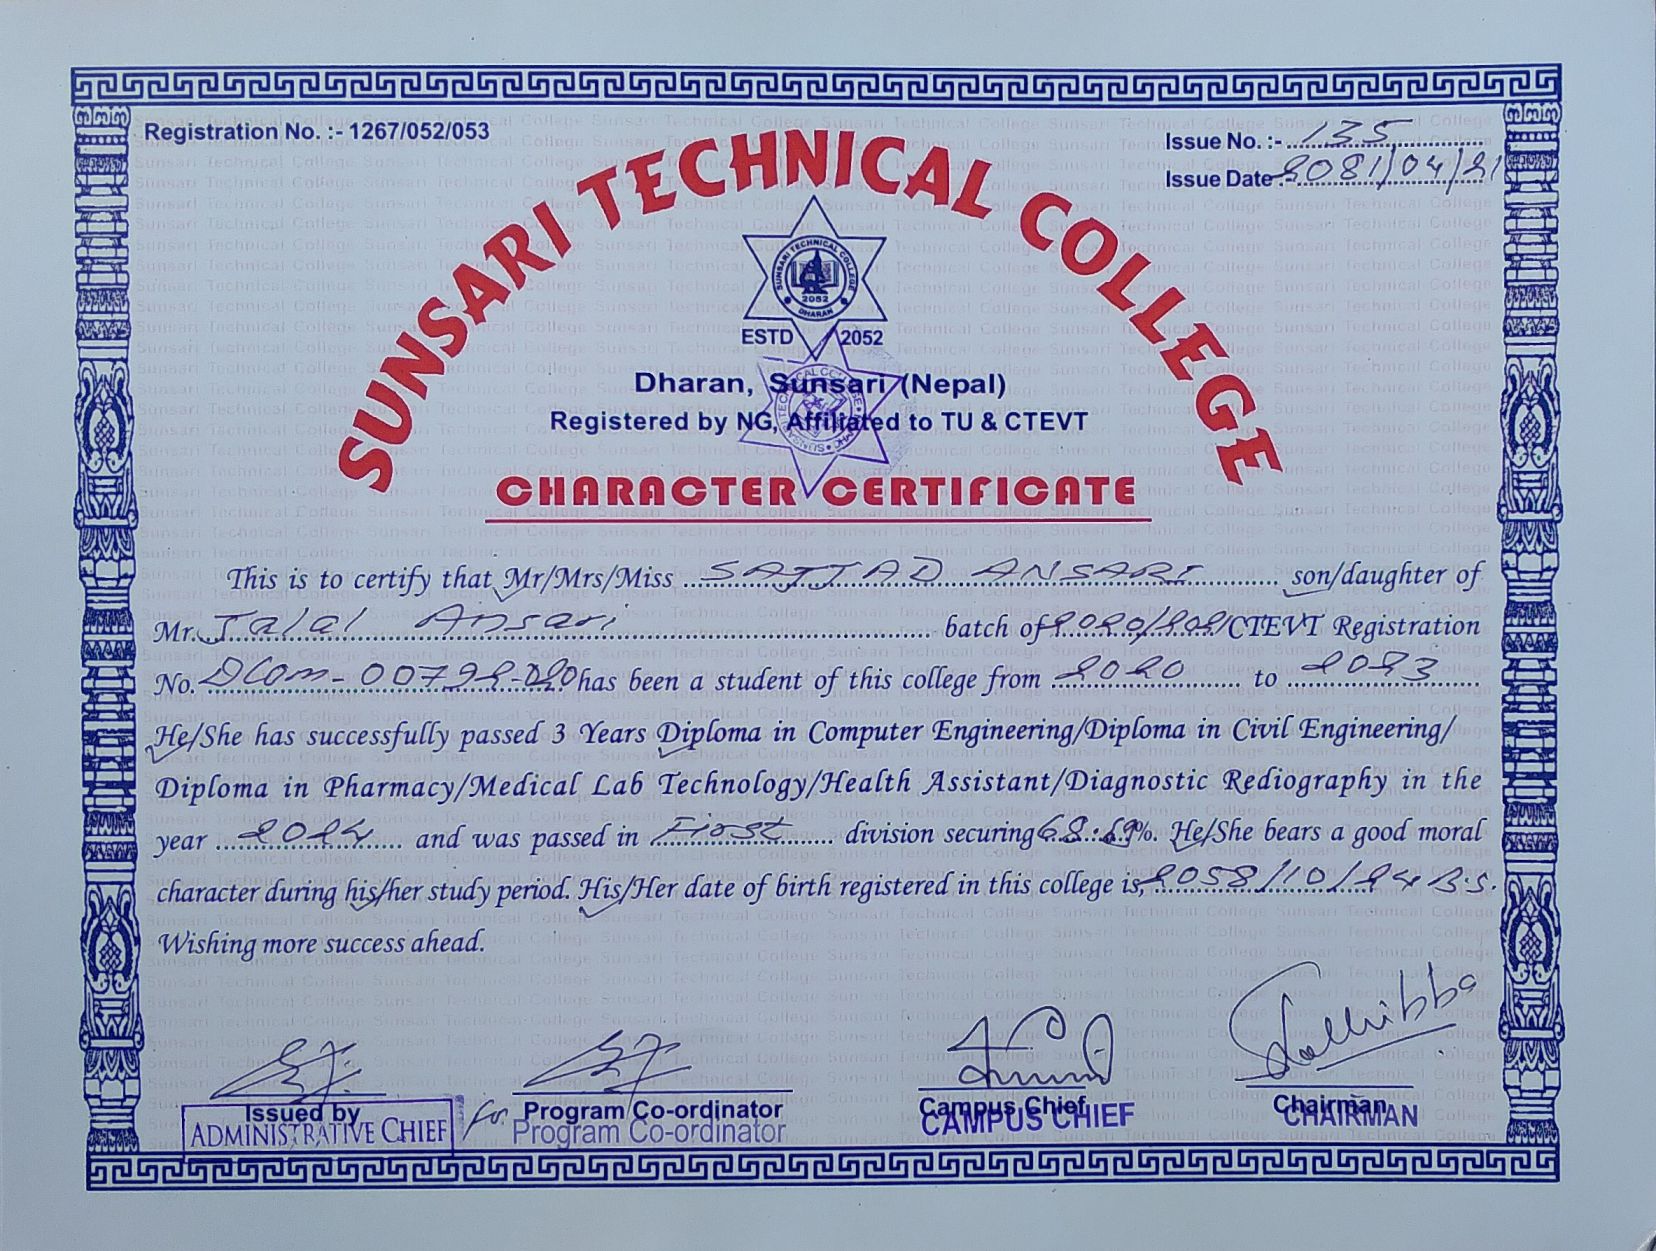 Registration No. :- 1267/052/053
Issue No. :- 135
Issue Date :- 2081/04/21
SUNSARI TECHNICAL COLLEGE
SUNSARI TECHNICAL COLLEGE
2052
DHARAN
ESTD 2052
Dharan, Sunsari (Nepal)
Registered by NG, Affiliated to TU & CTEVT
CHARACTER CERTIFICATE
This is to certify that Mr/Mrs/Miss SAJJAD ANSARI son/daughter of
Mr. Jalal Ansari batch of CTEVT Registration
No. has been a student of this college from 2020 to 2023
He/She has successfully passed 3 Years Diploma in Computer Engineering/Diploma in Civil Engineering/
Diploma in Pharmacy/Medical Lab Technology/Health Assistant/Diagnostic Rediography in the
year 2024 and was passed in First division securing %. He/She bears a good moral
character during his/her study period. His/Her date of birth registered in this college is, 2058/10/24 B.S.
Wishing more success ahead.
Issued by
ADMINISTRATIVE CHIEF
for Program Co-ordinator
Program Co-ordinator
Campus Chief
CAMPUS CHIEF
Chairman
CHAIRMAN